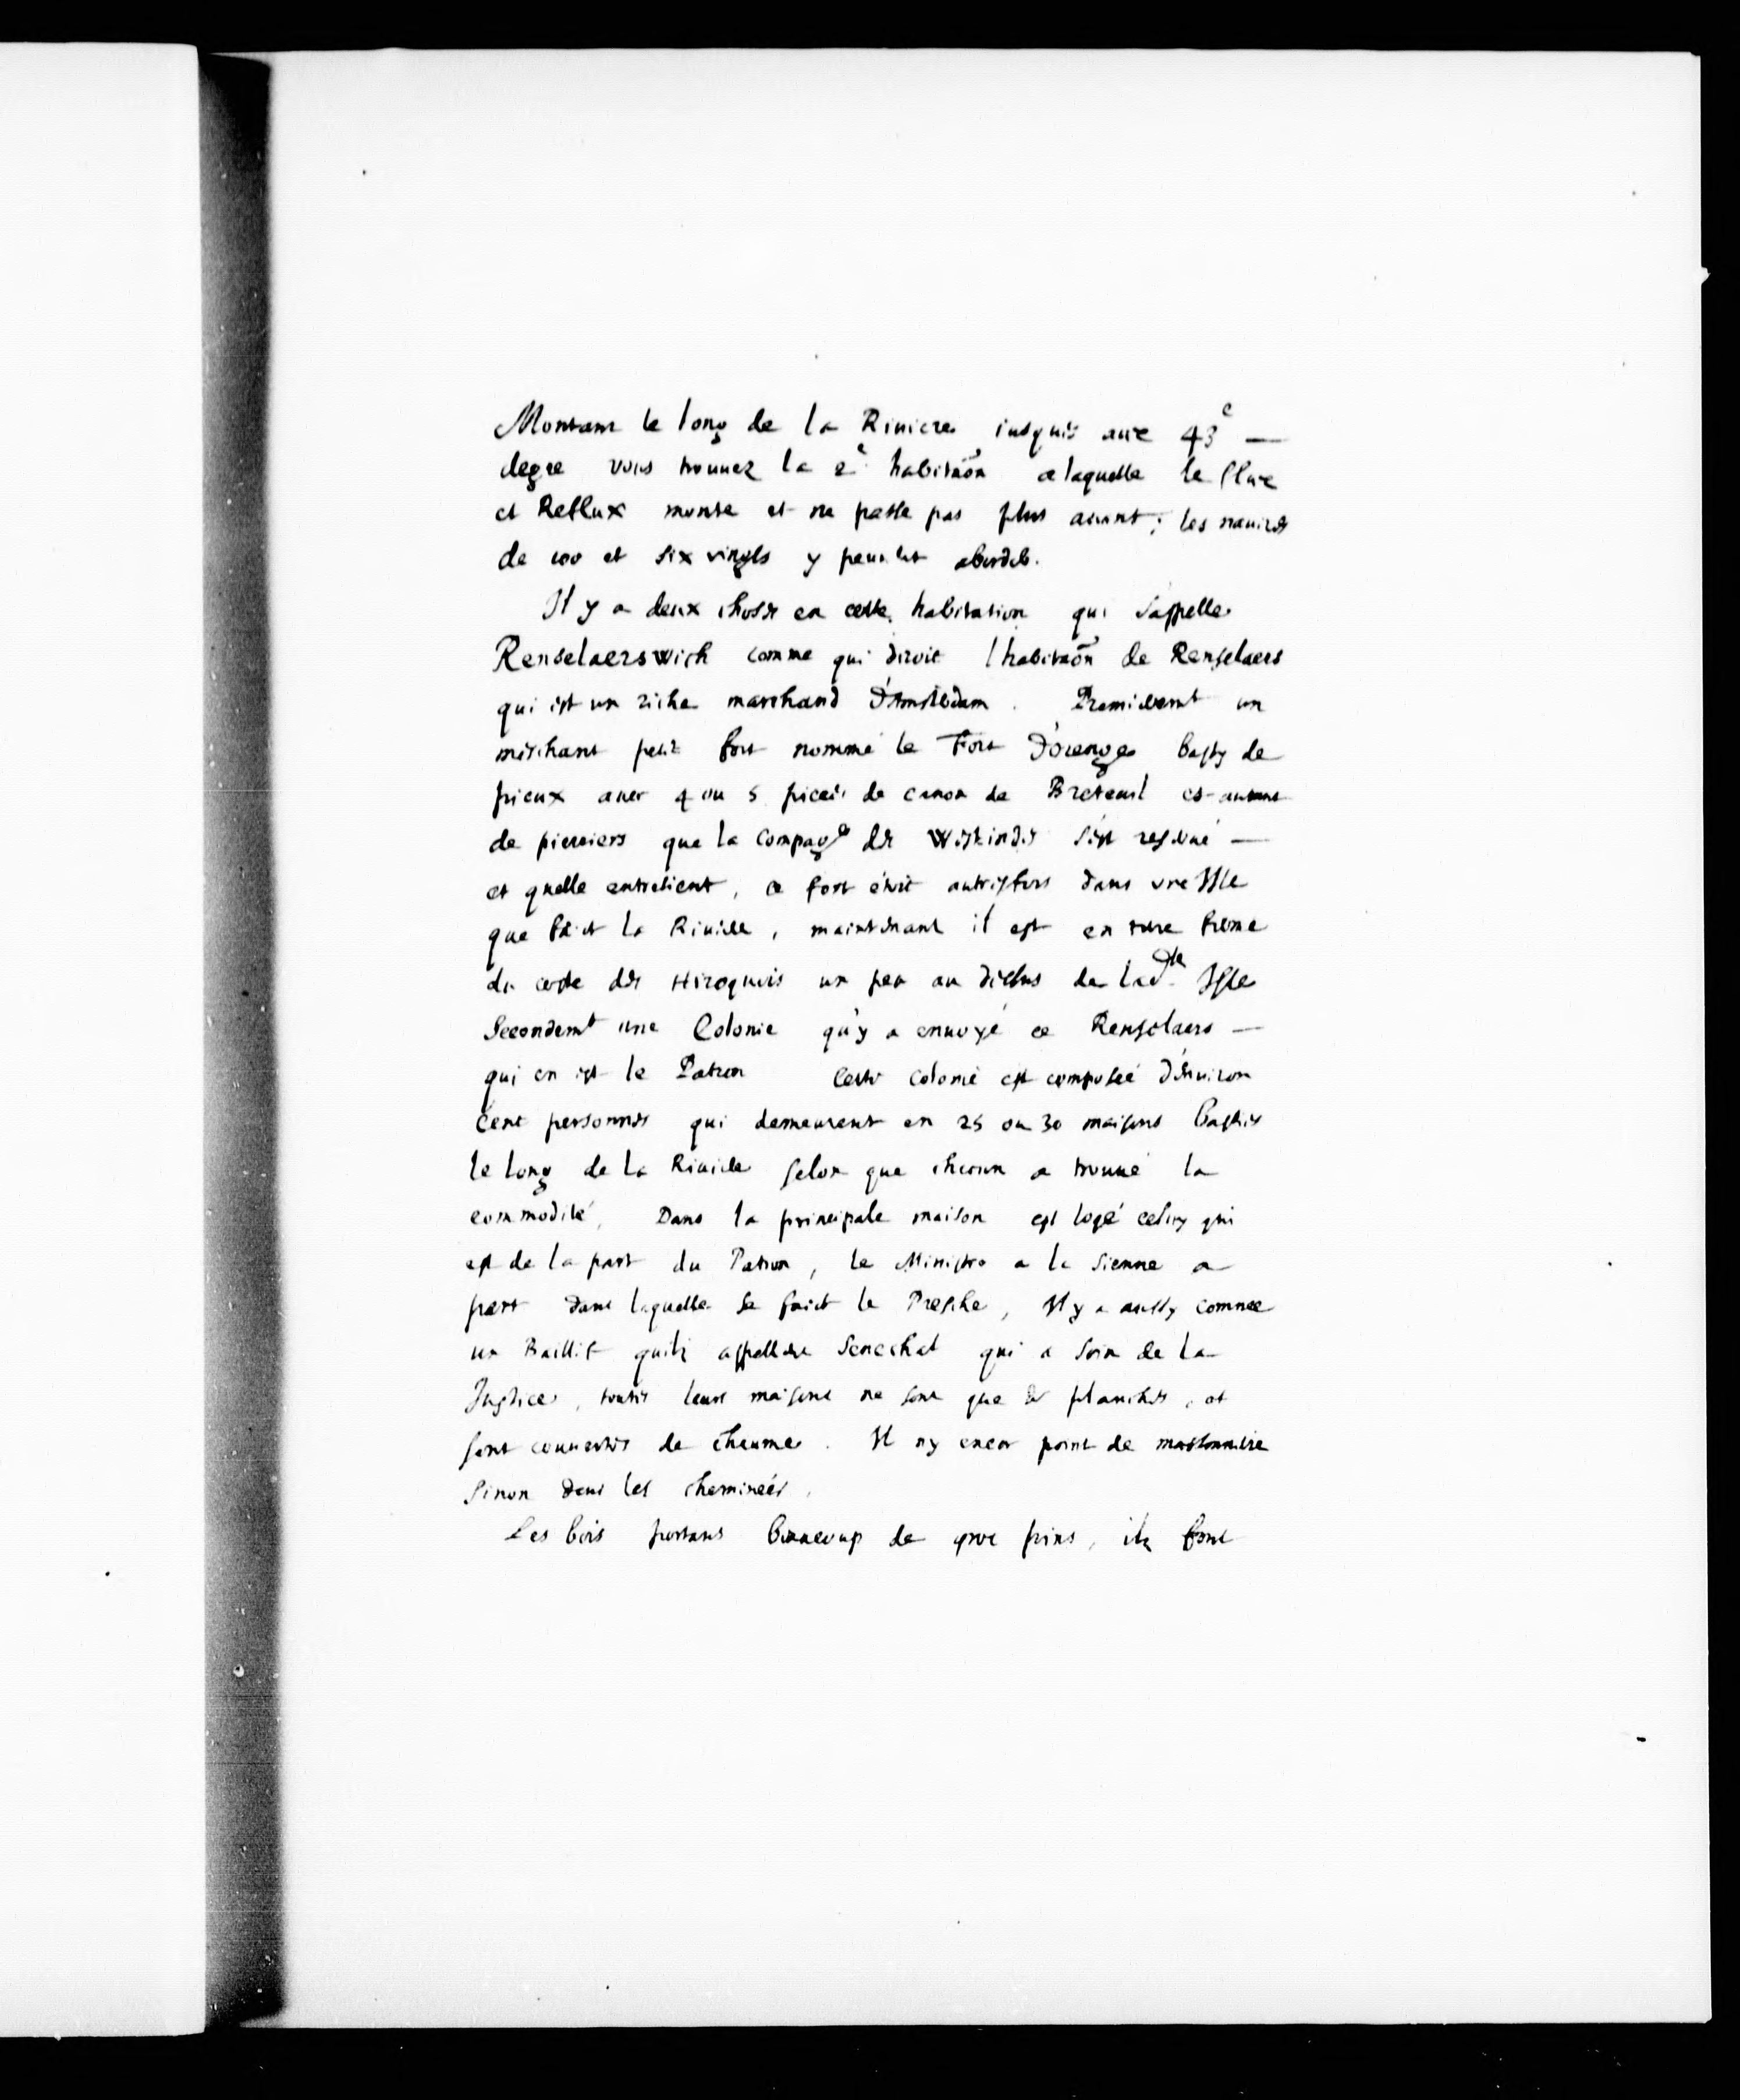 Montant le long de la Riuiere iusquis aux 43e —
degre vous trouuez la 2e habitaõn a laquelle le flux
et Reflux monte et ne passe pas plus auant; les nauires
de 100 et six vingts y peuuent aborder.
Il y a deux choses en ceste habitation qui s'appelle
Renselaerswich comme qui diroit l habitaõn de Renselaers
qui est un riche marchand d'Amsterdam. Premieremt un
meschant petit fort nommé le Fort d'orenge basty de
pieux auec 4 ou 5 pieces de canon de Breteuil et autant
de pierriers que la compage des Westindes s'est reserué —
et quelle entretient, ce fort étoit autresfois dans vne Isle
que faict la Riuiere, maintenant il est en terre ferme
du costé des Hiroquois un peu au dessus de ladte Isle
Secondemt une Colonie qu'y a enuoyé ce Renselaers —
qui en est le Patron Ceste colonie est composeé d'enuiron
cent personnes qui demeurent en 25 ou 30 maisons basties
le long de la Riuiere selon que chacun a trouué la
commodité, Dans la principale maison est logé celuy qui
est de la part du Patron, le Ministre a la sienne a
part dans laquelle se faict le Presche, Il y a aussy comme
un Baillif quilz appellent Senechal qui a soin de la
Justice, toutes leurs maisons ne sont que de planches, et
sont couuertes de chaume. Il ny encor point de massonnerie
sinon dans les cheminées,
Les bois portans beaucoup de gros pins, ilz font